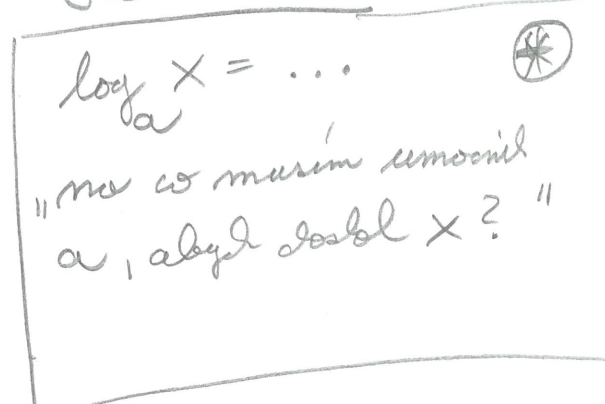 logₐ x = ...
„na co musím umocnit
a, abych dostal x?"